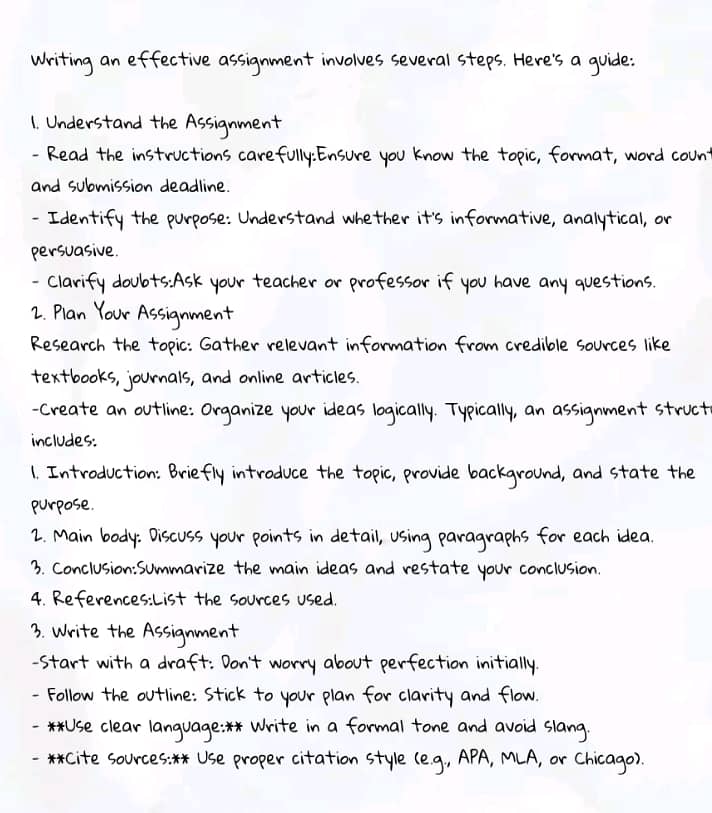 Writing an effective assignment involves several steps. Here's a guide:
1. Understand the Assignment
- Read the instructions carefully:Ensure you know the topic, format, word count
and submission deadline.
- Identify the purpose: Understand whether it's informative, analytical, or
persuasive.
- Clarify doubts:Ask your teacher or professor if you have any questions.
2. Plan Your Assignment
Research the topic: Gather relevant information from credible sources like
textbooks, journals, and online articles.
-Create an outline: Organize your ideas logically. Typically, an assignment
includes:
1. Introduction: Briefly introduce the topic, provide background, and state the
purpose.
2. Main body: Discuss your points in detail, using paragraphs for each idea.
3. Conclusion:Summarize the main ideas and restate your conclusion.
4. References:List the sources used.
3. Write the Assignment
-Start with a draft: Don't worry about perfection initially.
- Follow the outline: Stick to your plan for clarity and flow.
- **Use clear language:** Write in a formal tone and avoid slang.
- **Cite sources:** Use proper citation style (e.g., APA, MLA, or Chicago).